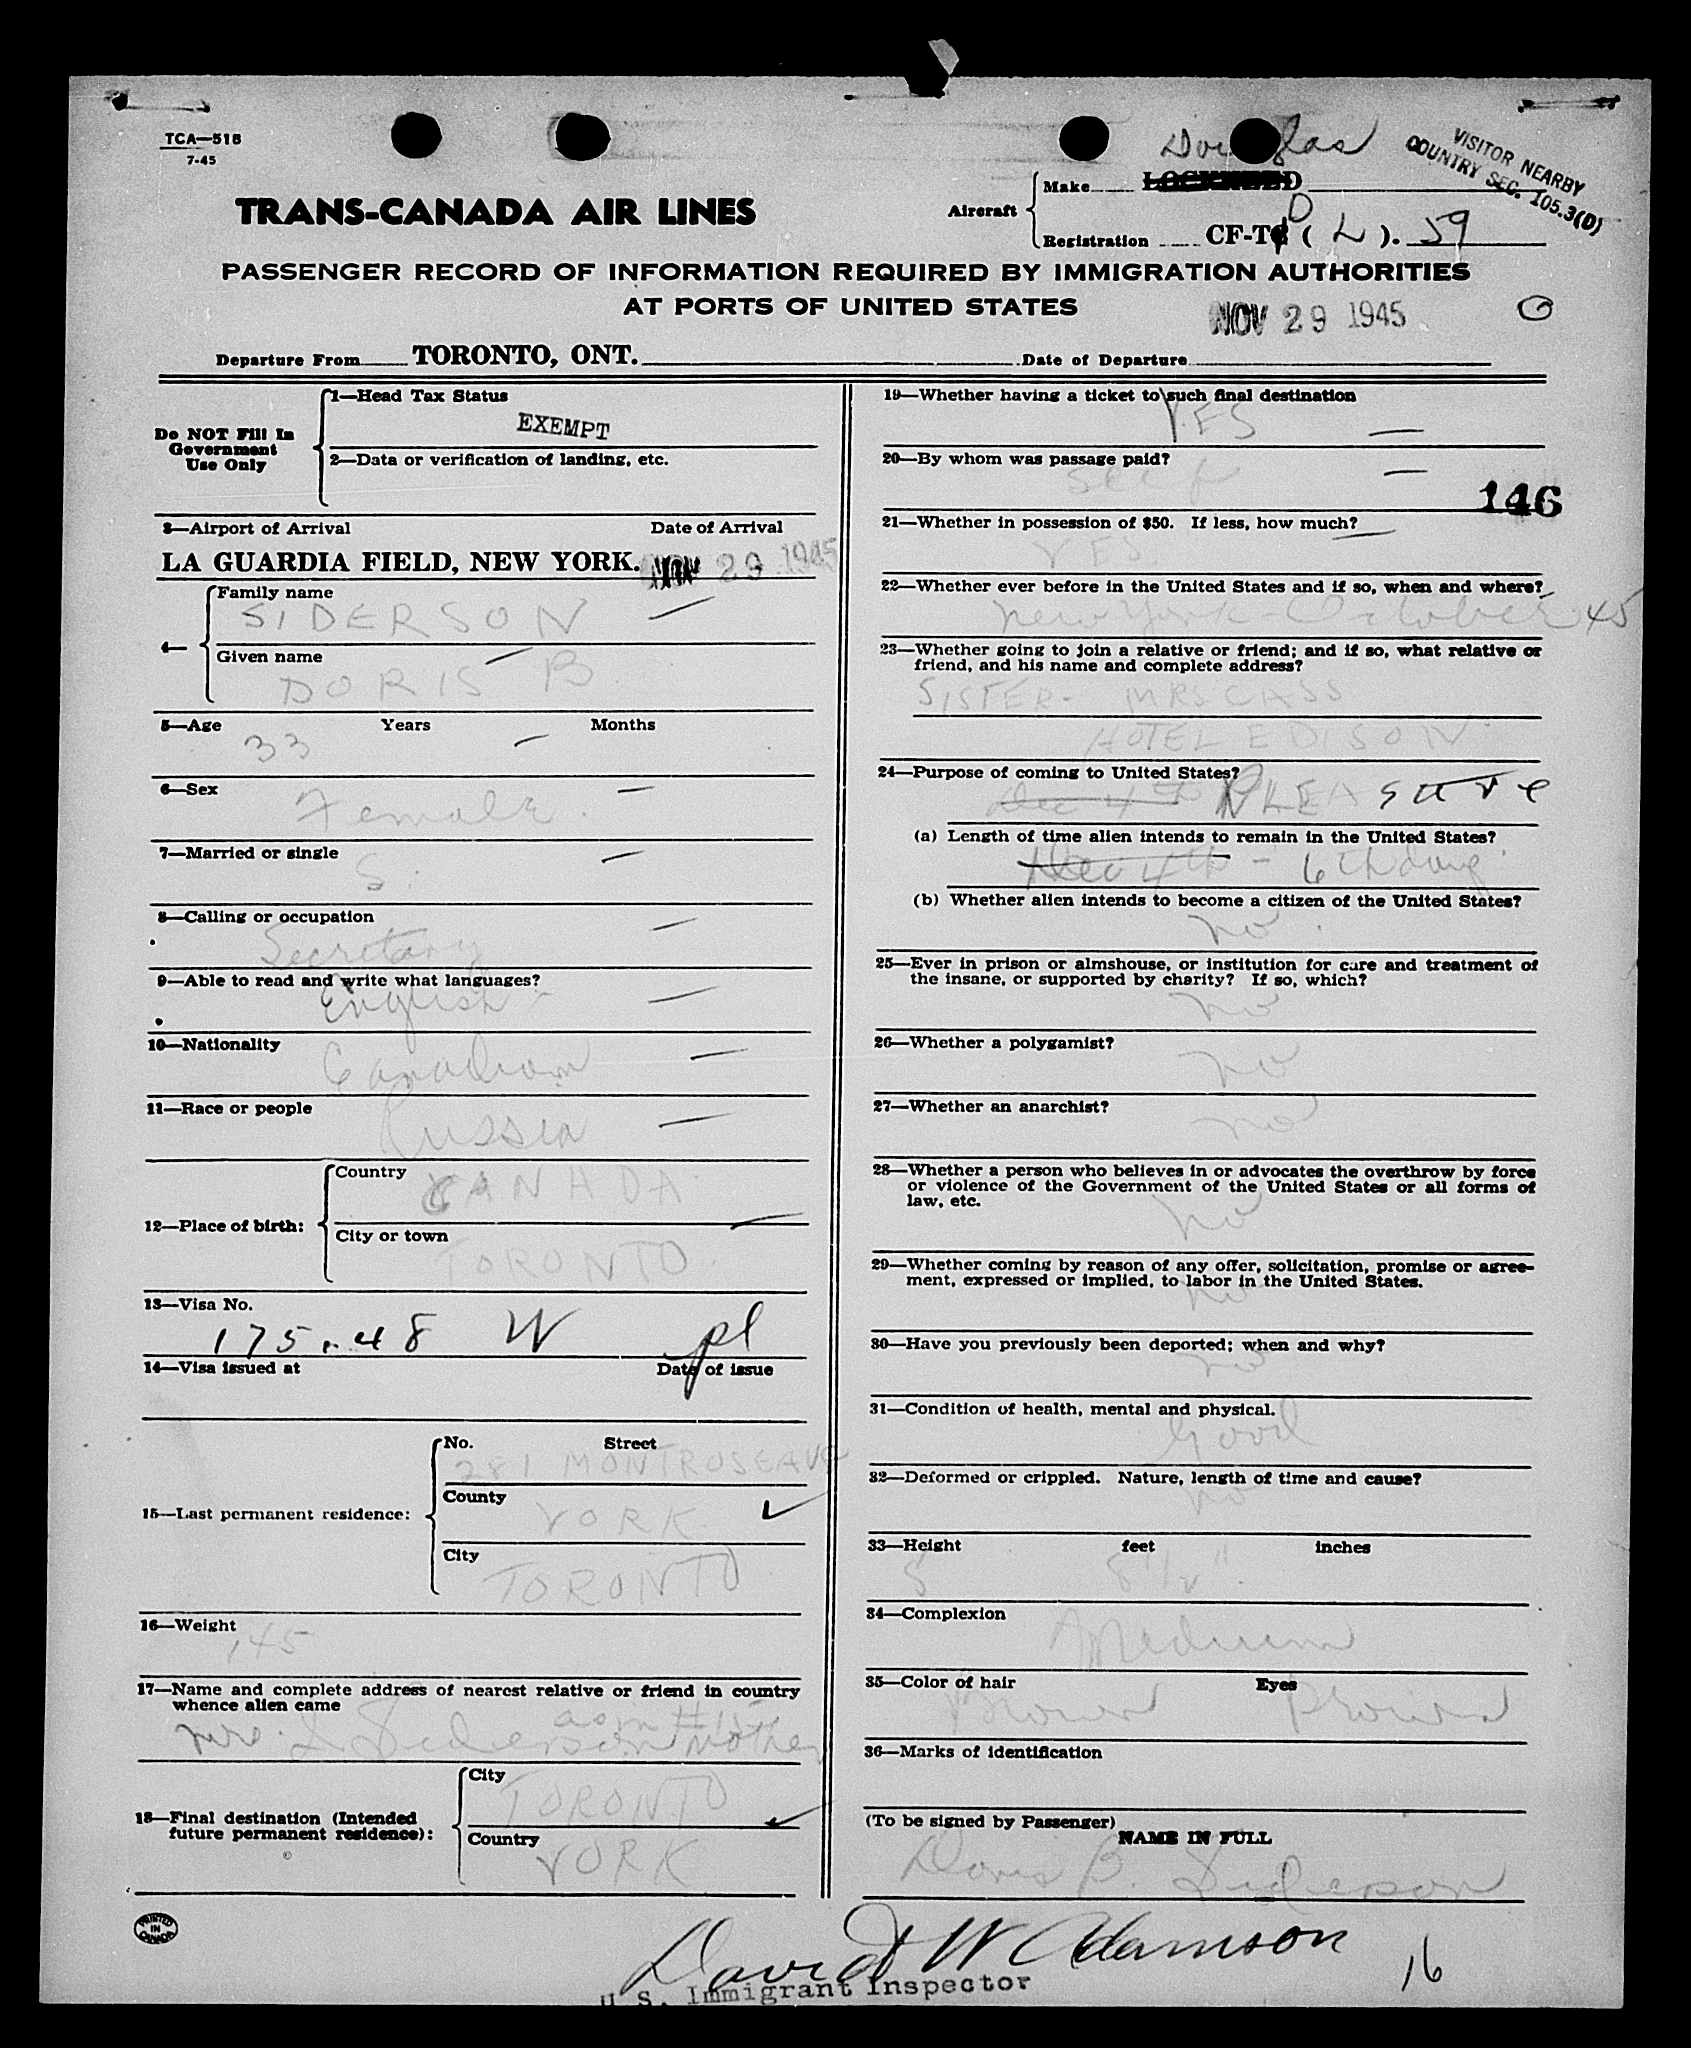 TCA—518
7-45
Douglas
VISITOR NEARBY
COUNTRY SEC. 105.3(D)
TRANS-CANADA AIR LINES
Aircraft
Make LOCKHEED
Registration CF-T D ( L ). 59
PASSENGER RECORD OF INFORMATION REQUIRED BY IMMIGRATION AUTHORITIES
AT PORTS OF UNITED STATES
NOV 29 1945
Departure From TORONTO, ONT. Date of Departure
Do NOT Fill In
Government
Use Only
1—Head Tax Status
EXEMPT
2—Data or verification of landing, etc.
3—Airport of Arrival Date of Arrival
LA GUARDIA FIELD, NEW YORK. NOV 29 1945
4—
Family name
SIDERSON
Given name
DORIS B
5—Age Years Months
33
6—Sex
Female.
7—Married or single
S.
8—Calling or occupation
Secretary
9—Able to read and write what languages?
English
10—Nationality
Canadian
11—Race or people
Russia
12—Place of birth:
Country
CANADA
City or town
TORONTO
13—Visa No.
175.48 W pl
14—Visa issued at Date of issue
15—Last permanent residence:
No. Street
281 MONTROSE AVE
County
YORK
City
TORONTO
16—Weight
145
17—Name and complete address of nearest relative or friend in country
whence alien came
as in #15
Mrs. S Siderson Mother
18—Final destination (Intended
future permanent residence):
City
TORONTO
Country
YORK
PRINTED
IN
CANADA
19—Whether having a ticket to such final destination
YES
20—By whom was passage paid?
Self
146
21—Whether in possession of $50. If less, how much?
YES.
22—Whether ever before in the United States and if so, when and where?
New York - October 45
23—Whether going to join a relative or friend; and if so, what relative or
friend, and his name and complete address?
SISTER- MRS CASS
HOTEL EDISON
24—Purpose of coming to United States?
Dec 4th PLEASure
(a) Length of time alien intends to remain in the United States?
Dec 4th - 6
(b) Whether alien intends to become a citizen of the United States?
No.
25—Ever in prison or almshouse, or institution for care and treatment of
the insane, or supported by charity? If so, which?
No
26—Whether a polygamist?
No
27—Whether an anarchist?
No
28—Whether a person who believes in or advocates the overthrow by force
or violence of the Government of the United States or all forms of
law, etc.
No
29—Whether coming by reason of any offer, solicitation, promise or agree-
ment, expressed or implied, to labor in the United States.
No
30—Have you previously been deported; when and why?
No
31—Condition of health, mental and physical.
Good
32—Deformed or crippled. Nature, length of time and cause?
No
33—Height feet inches
5 8 1/2".
34—Complexion
Medium
35—Color of hair Eyes
Brown Brown
36—Marks of identification
(To be signed by Passenger)
NAME IN FULL
Doris B. Siderson
David W Adamson
U.S. Immigrant Inspector
16